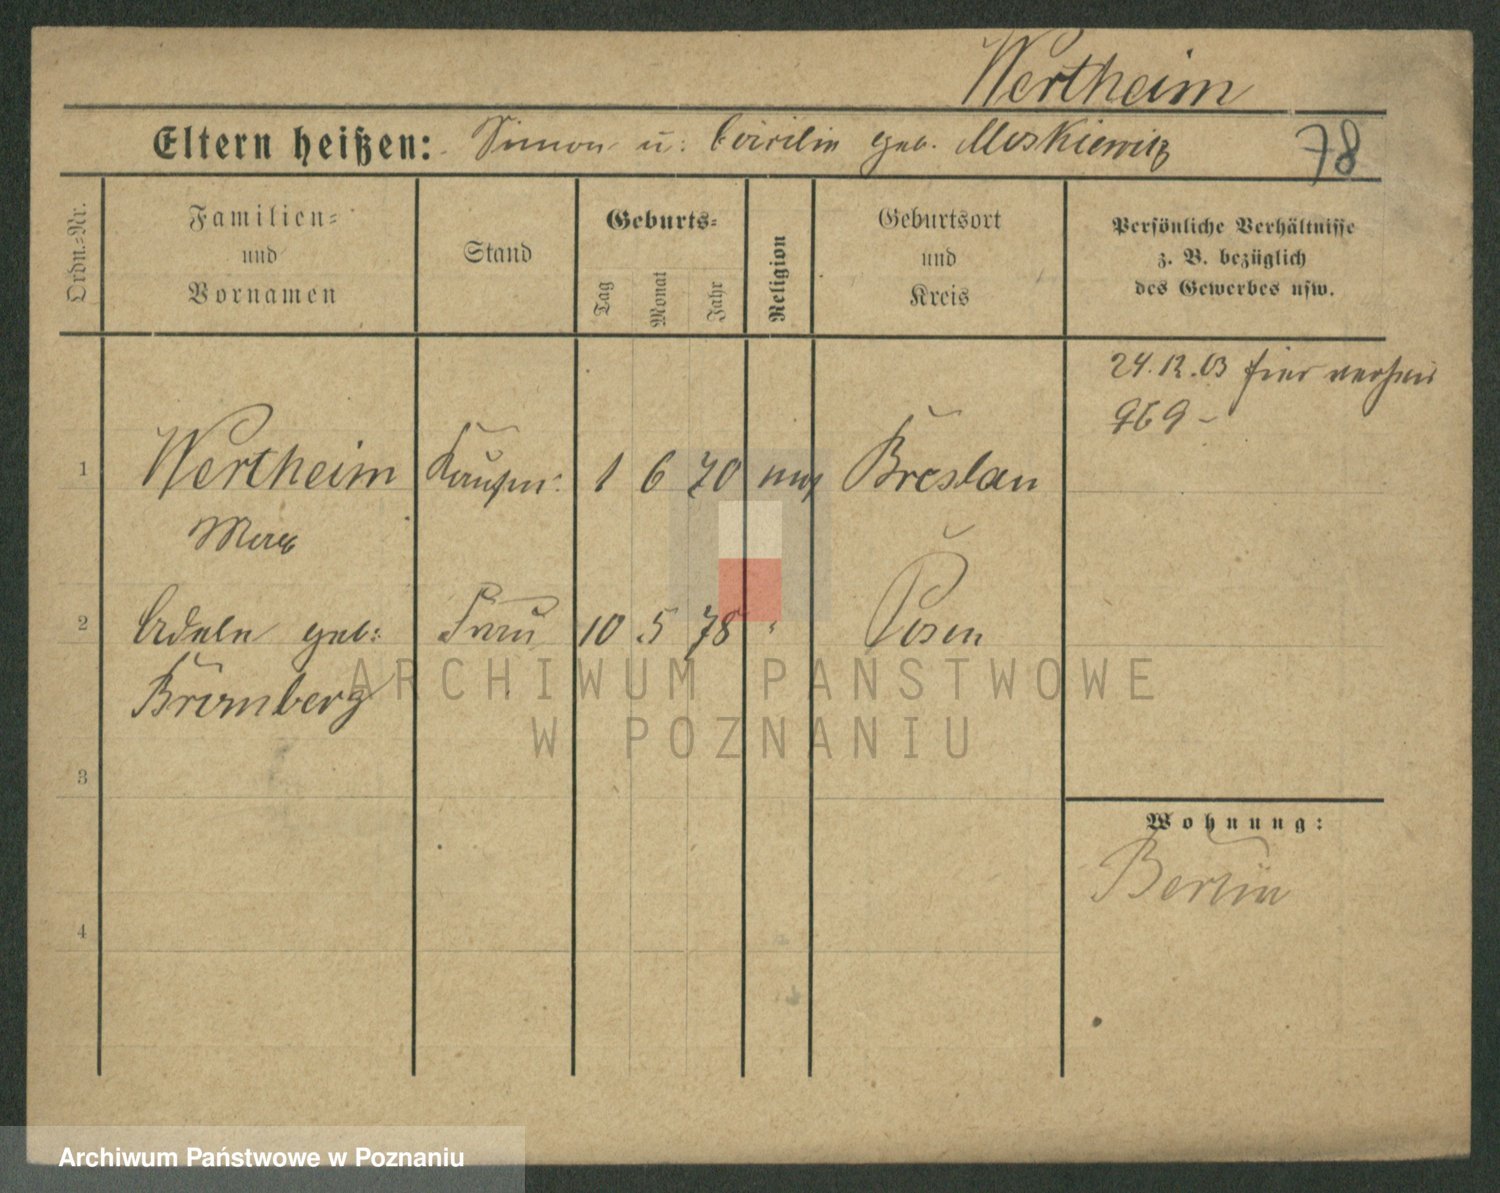 Wertheim
Eltern heißen: Simon u: geb. Moskiewitz
78
Ordn.=Nr.
Familien=
und
Vornamen
Stand
Geburts=
Tag
Monat
Jahr
Religion
Geburtsort
und
Kreis
Persönliche Verhältnisse
z. B. bezüglich
des Gewerbes usw.
24. 12. 03 hier
969 -
1 Wertheim Kaufm: 1 6 70 mos Breslau
Max
2 Adele geb: Frau 10 5 78 " Posen
3
Wohnung:
Berlin
4
ARCHIWUM PAŃSTWOWE
W POZNANIU
Archiwum Państwowe w Poznaniu